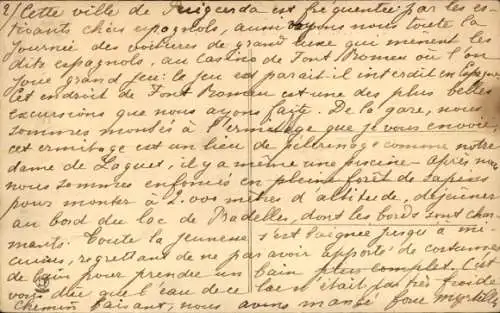 2/ Cette ville de Puigcerda est fréquentée par les es-
tivants chics espagnols, aussi voyons nous toute la
journée des voitures de grand luxe qui mènent les
dits espagnols, au Casino de Font Romeu où l'on
joue grand jeu: le jeu est parait il interdit en Espagne
Cet endroit de Font Romeu est une des plus belles
excursions que nous ayons faite. De la gare, nous
sommes montés à l'ermitage que je vous envoie
cet ermitage est un lieu de pélerinage comme notre
dame de Laguet, il y a même une piscine - après nous
nous sommes enfoncés en pleine forêt de sapins
pour monter à 2.000 mètres d'altitude, déjeûner
au bord du lac de Pradelles, dont les bords sont char-
mants. Toute la jeunesse s'est baignée jusqu'à mi-
cuisses, regrettant de ne pas avoir apporté de costumes
de bain pour prendre un bain plus complet. C'est
vous dire que l'eau de ce lac n'était pas très froide
chemin faisant, nous avons mangé force myrtilles